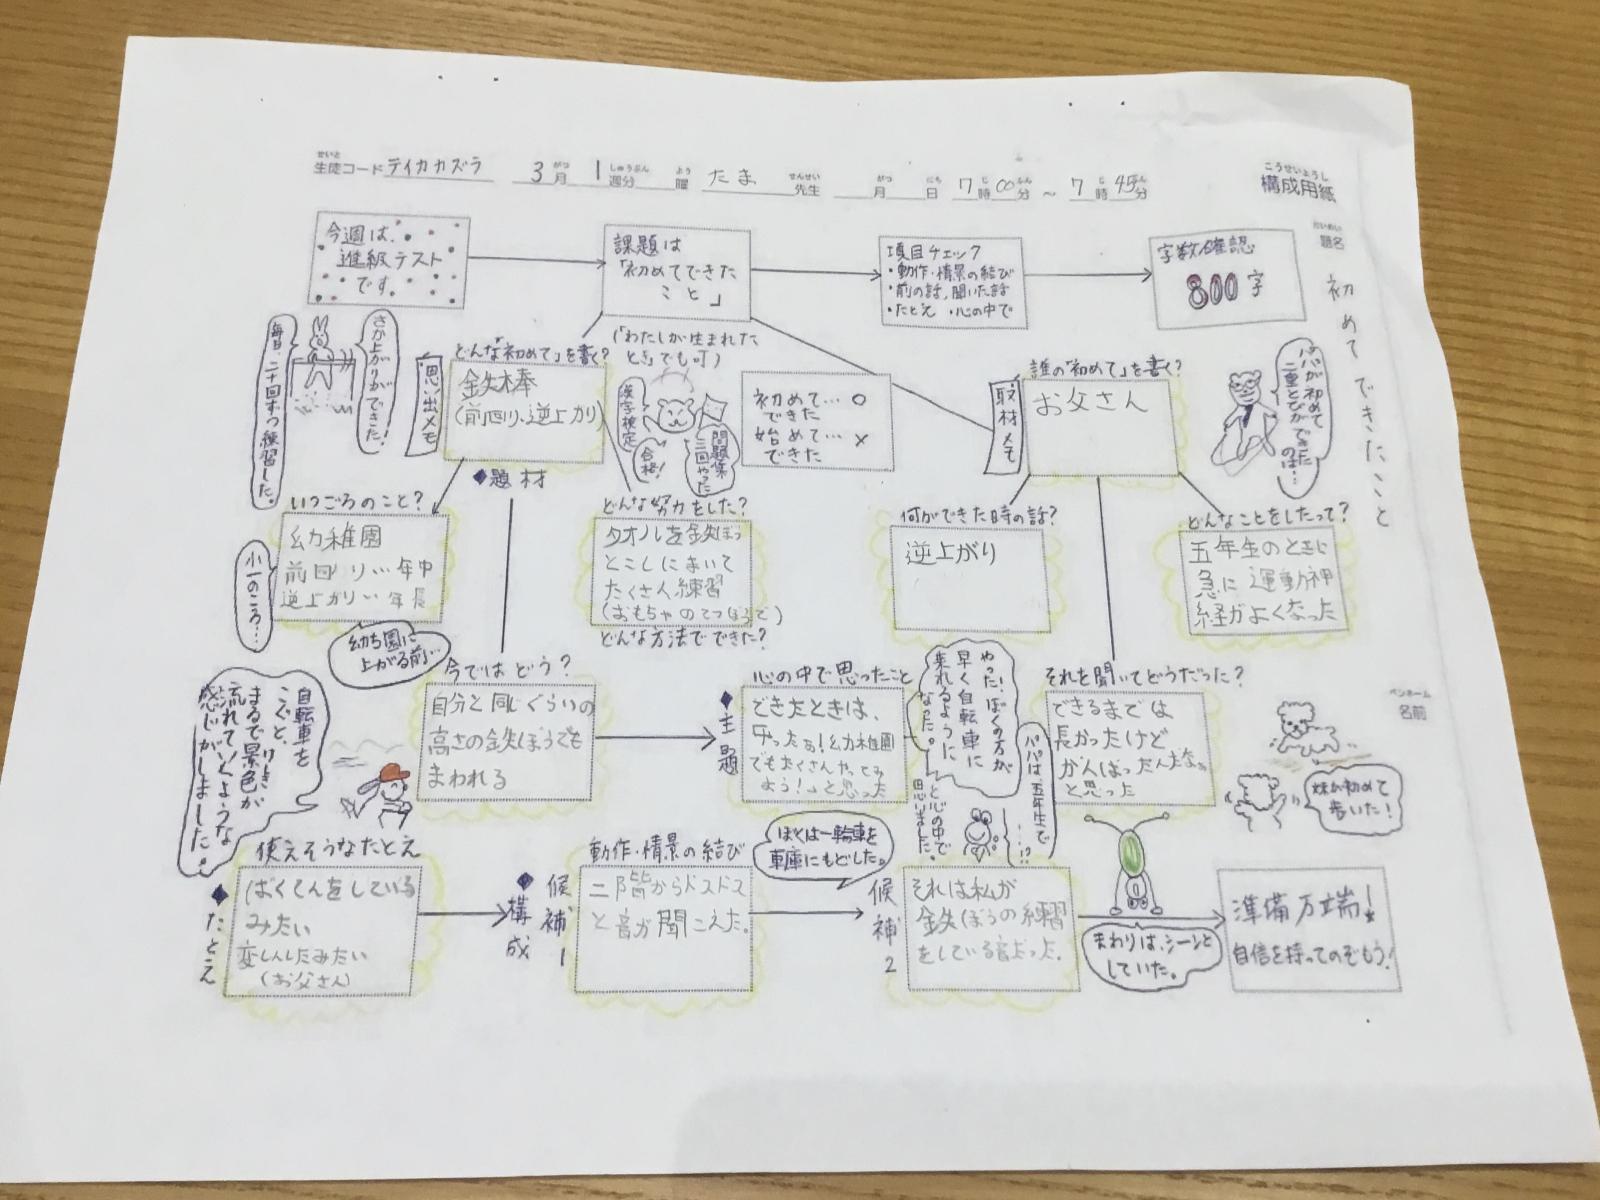 せいと
生徒コード テイカカズラ 3月 1週分 曜 たま 先生 月 日 17時00分～17時45分
こうせいようし
構成用紙
だいめい
題名
初めてできたこと
今週は、
進級テスト
です。
課題は
「初めてできた
こと」
項目チェック
・動作・情景の結び
・前の話、聞いた話
・たとえ ・心の中で
字数確認
800字
(「わたしが生まれた
とき」でも可)
毎日、二十回ずつ練習した。
さか上がりができた！
思い出メモ
どんな「初めて」を書く？
鉄棒
(前回り、逆上がり)
◆題材
漢字検定
合格！
問題集
三回やった
初めて…○
できた
始めて…×
できた
取材メモ
誰の「初めて」を書く？
お父さん
パパが初めて
二重とびができた
のは…
いつごろのこと？
幼稚園
前回り…年中
逆上がり…年長
小一のころ…
幼ち園に
上がる前…
どんな努力をした？
タオルを鉄ぼう
とこしにまいて
たくさん練習
(おもちゃのてつぼうで)
どんな方法でできた？
何ができた時の話？
逆上がり
どんなことをしたって？
五年生のときに
急に運動神
経がよくなった
自転車を
こぐと、
まるで景色が
流れていくような
感じがしました。
今ではどう？
自分と同じぐらいの
高さの鉄ぼうでも
まわれる
◆主題
心の中で思ったこと
できたときは、
やったぁ！幼稚園
でもたくさんやってみ
よう！」と思った
やった！ぼくの方が
早く自転車に
乗れるように
なった。
と心の中で
思いました。
パパは、五年生で
……!?
それを聞いてどうだった？
できるまでは
長かったけど
がんばったんだなぁ
と思った
ペンネーム
名前
妹が初めて
歩いた！
使えそうなたとえ
◆たとえ
ばくてんをしている
みたい
変しんしたみたい
(お父さん)
◆構成
動作・情景の結び
候補1
二階からドスドス
と音が聞こえた。
ぼくは一輪車を
車庫にもどした。
候補2
それは私が
鉄ぼうの練習
をしている音だった。
まわりは、シーンと
していた。
準備万端！
自信を持ってのぞもう！